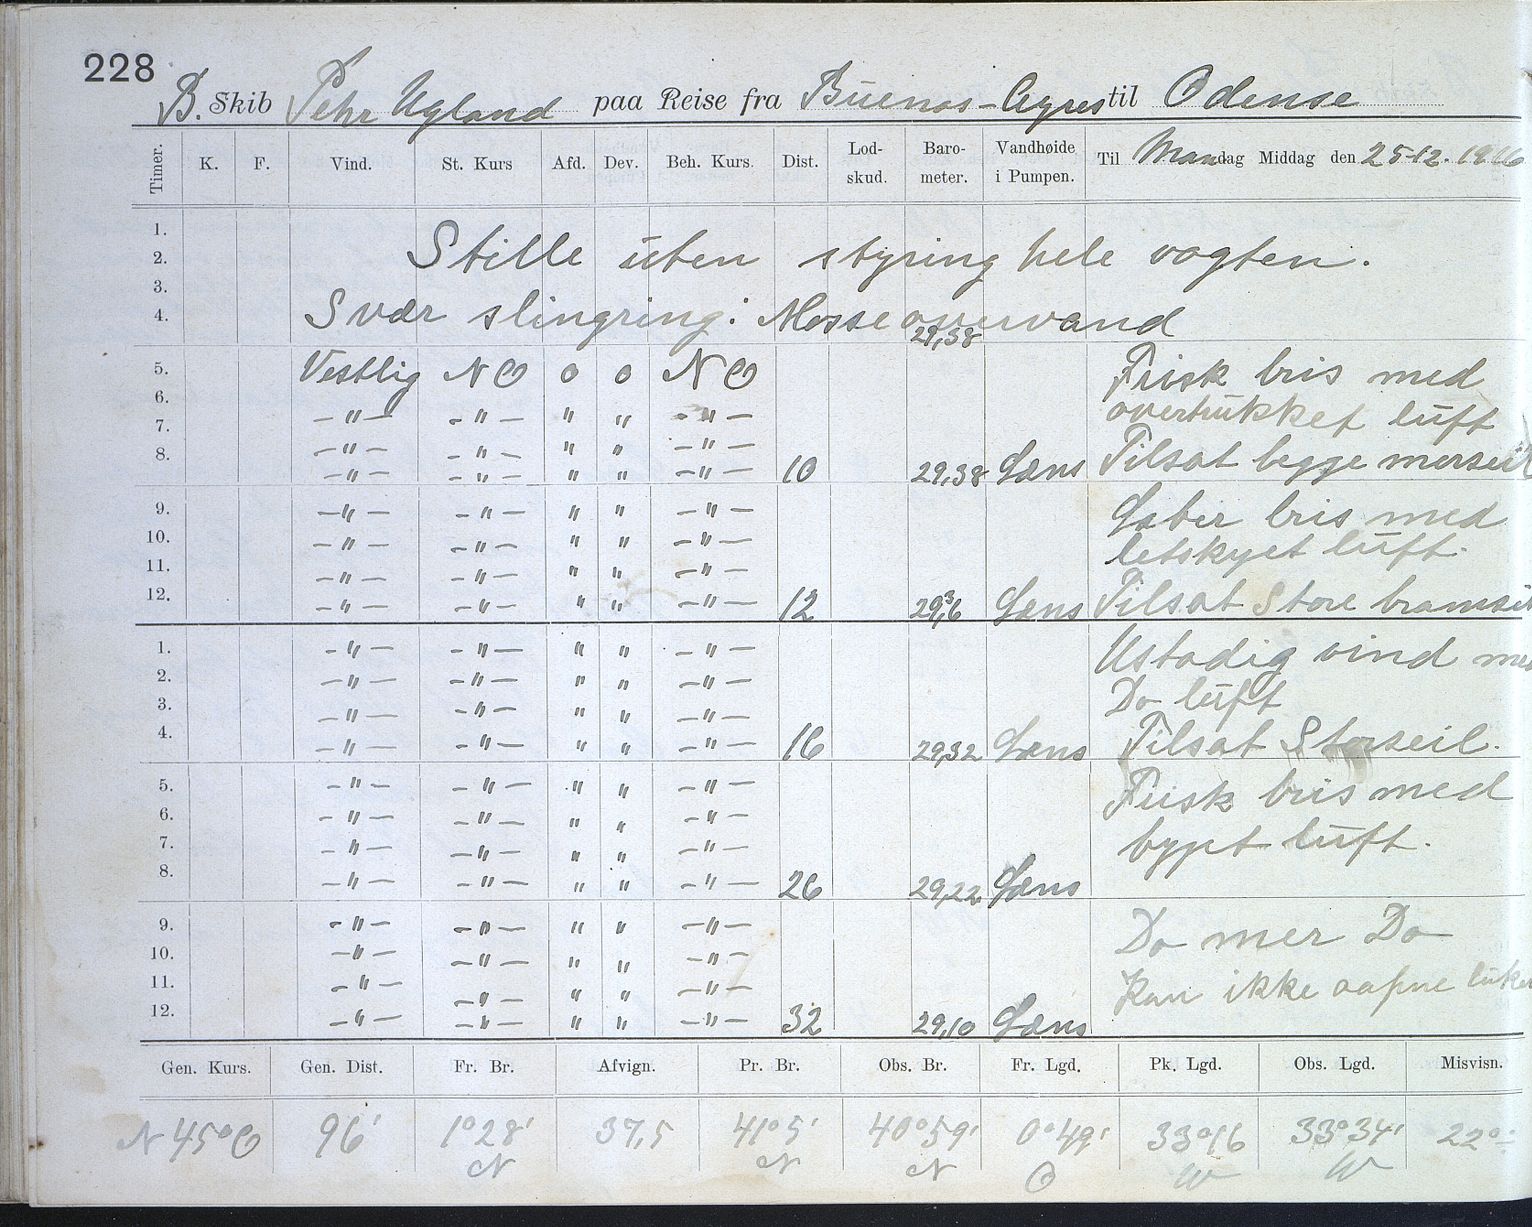 228
B. Skib Pehr Ugland paa Reise fra Buenos-Ayres til Odense
Timer. K. F. Vind. St. Kurs Afd. Dev. Beh. Kurs. Dist. Lod-skud. Baro-meter. Vandhøide i Pumpen. Til Mandag Middag den 25-12. 1916
1.
2. Stille uten styring hele vagten.
3.
4. Svær slingring. Masse overvand 29,38
5. Vestlig NO o o NO Frisk bris med
6. -"- -"- " " -"- overtrukket luft
7. -"- -"- " " -"-
8. -"- -"- " " -"- 10 29,38 Læns Tilsat begge merseil
9. -"- -"- " " -"- Laber bris med
10. -"- -"- " " -"- letskyet luft.
11. -"- -"- " " -"-
12. -"- -"- " " -"- 12 29,36 Læns Tilsat Store bramseil
1. -"- -"- " " -"- Ustadig vind med
2. -"- -"- " " -"- Do luft
3. -"- -"- " " -"-
4. -"- -"- " " -"- 16 29,32 Læns Tilsat Storseil.
5. -"- -"- " " -"- Frisk bris med
6. -"- -"- " " -"-
7. -"- -"- " " -"- byget luft.
8. -"- -"- " " -"- 26 29,22 Læns
9. -"- -"- " " -"- Do mer Do
10. -"- -"- " " -"-
11. -"- -"- " " -"- Kan ikke aapne luken
12. -"- -"- " " -"- 32 29,10 Læns
Gen. Kurs. Gen. Dist. Fr. Br. Afvign. Pr. Br. Obs. Br. Fr. Lgd. Pk. Lgd. Obs. Lgd. Misvisn.
N 45° O 96' 1°28' 37,5 41°5' 40°59' 0°49' 33°16 33°34' 22°
N N N O W W